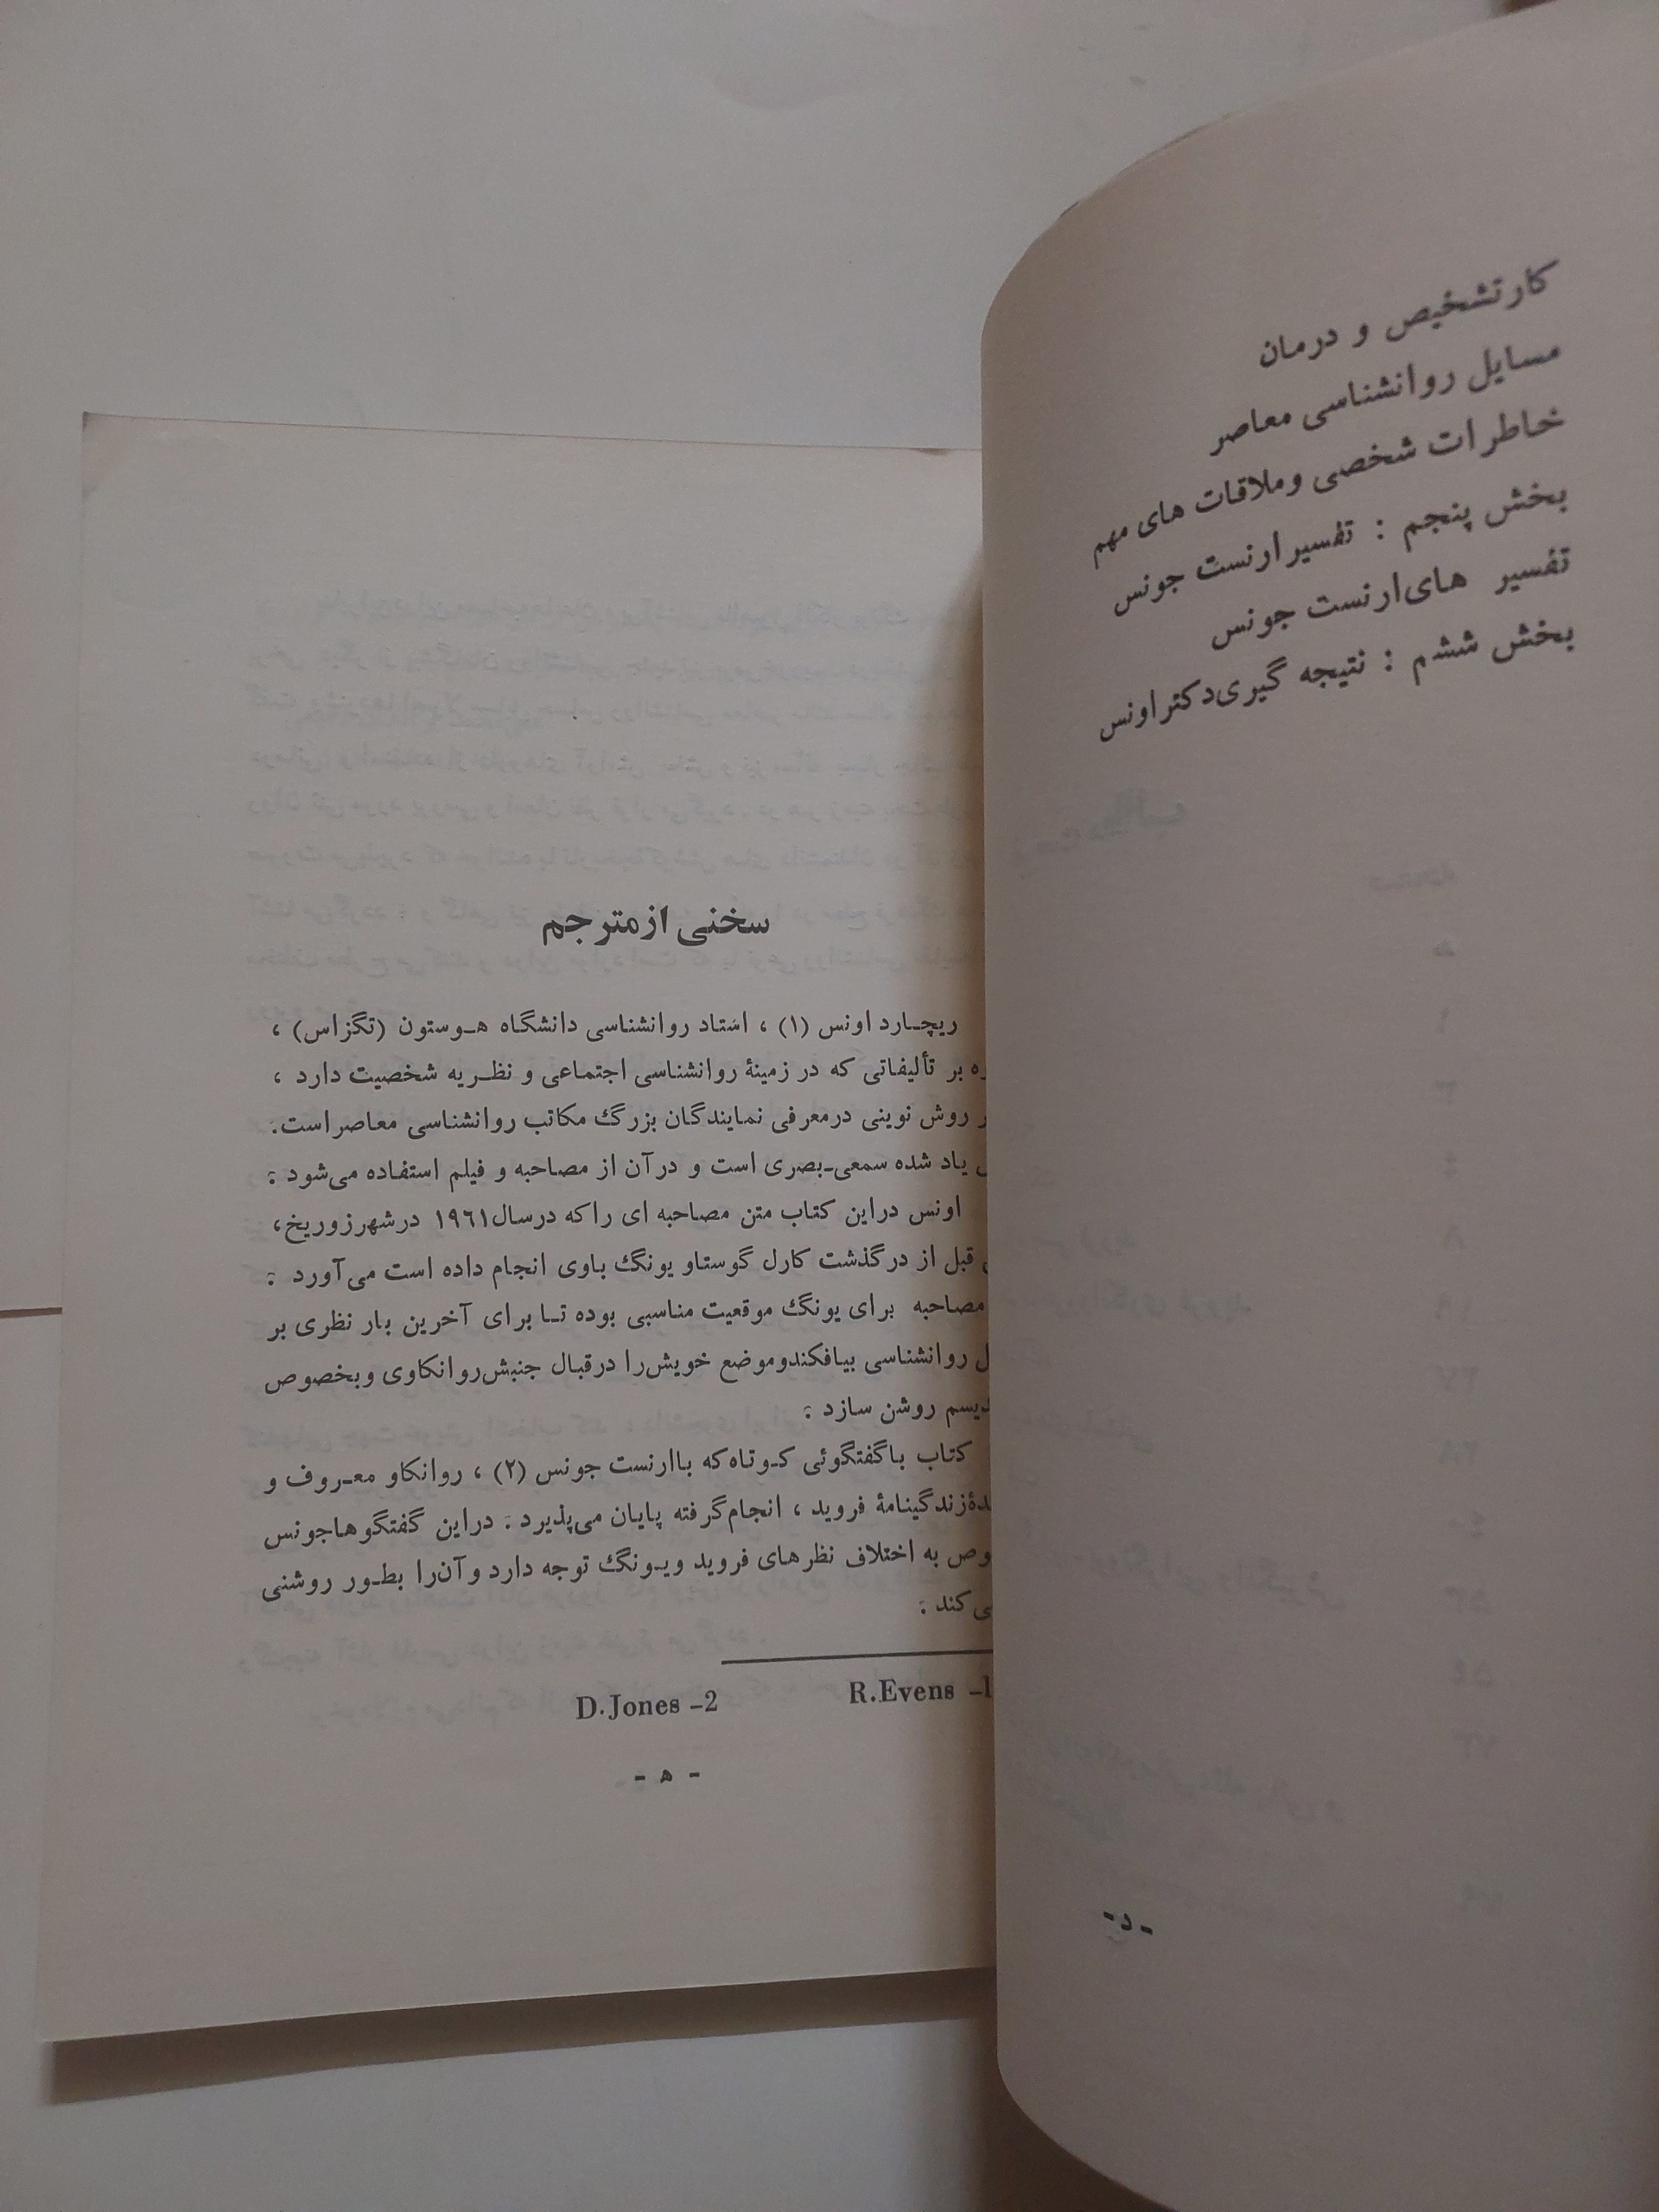 کار تشخیص و درمان
مسایل روانشناسی معاصر
خاطرات شخصی و ملاقات های مهم
بخش پنجم : تفسیر ارنست جونس
تفسیر های ارنست جونس
بخش ششم : نتیجه گیری دکتر اونس
- د -
سخنی از مترجم
ریچارد اونس (۱) ، استاد روانشناسی دانشگاه هوستون (تگزاس) ،
بر تألیفاتی که در زمینهٔ روانشناسی اجتماعی و نظریه شخصیت دارد ،
روش نوینی در معرفی نمایندگان بزرگ مکاتب روانشناسی معاصر است.
یاد شده سمعی-بصری است و در آن از مصاحبه و فیلم استفاده می‌شود .
اونس در این کتاب متن مصاحبه ای را که در سال ۱۹۶۱ در شهر زوریخ ،
قبل از درگذشت کارل گوستاو یونگ باوی انجام داده است می‌آورد .
مصاحبه برای یونگ موقعیت مناسبی بوده تا برای آخرین بار نظری بر
روانشناسی بیافکند و موضع خویش را در قبال جنبش روانکاوی و بخصوص
روشن سازد .
کتاب با گفتگوئی کوتاه که با ارنست جونس (۲) ، روانکاو معروف و
زندگینامهٔ فروید ، انجام گرفته پایان می‌پذیرد . در این گفتگوها جونس
به اختلاف نظرهای فروید و یونگ توجه دارد و آن را بطور روشنی
کند .
R.Evens -1
D.Jones -2
- ه -